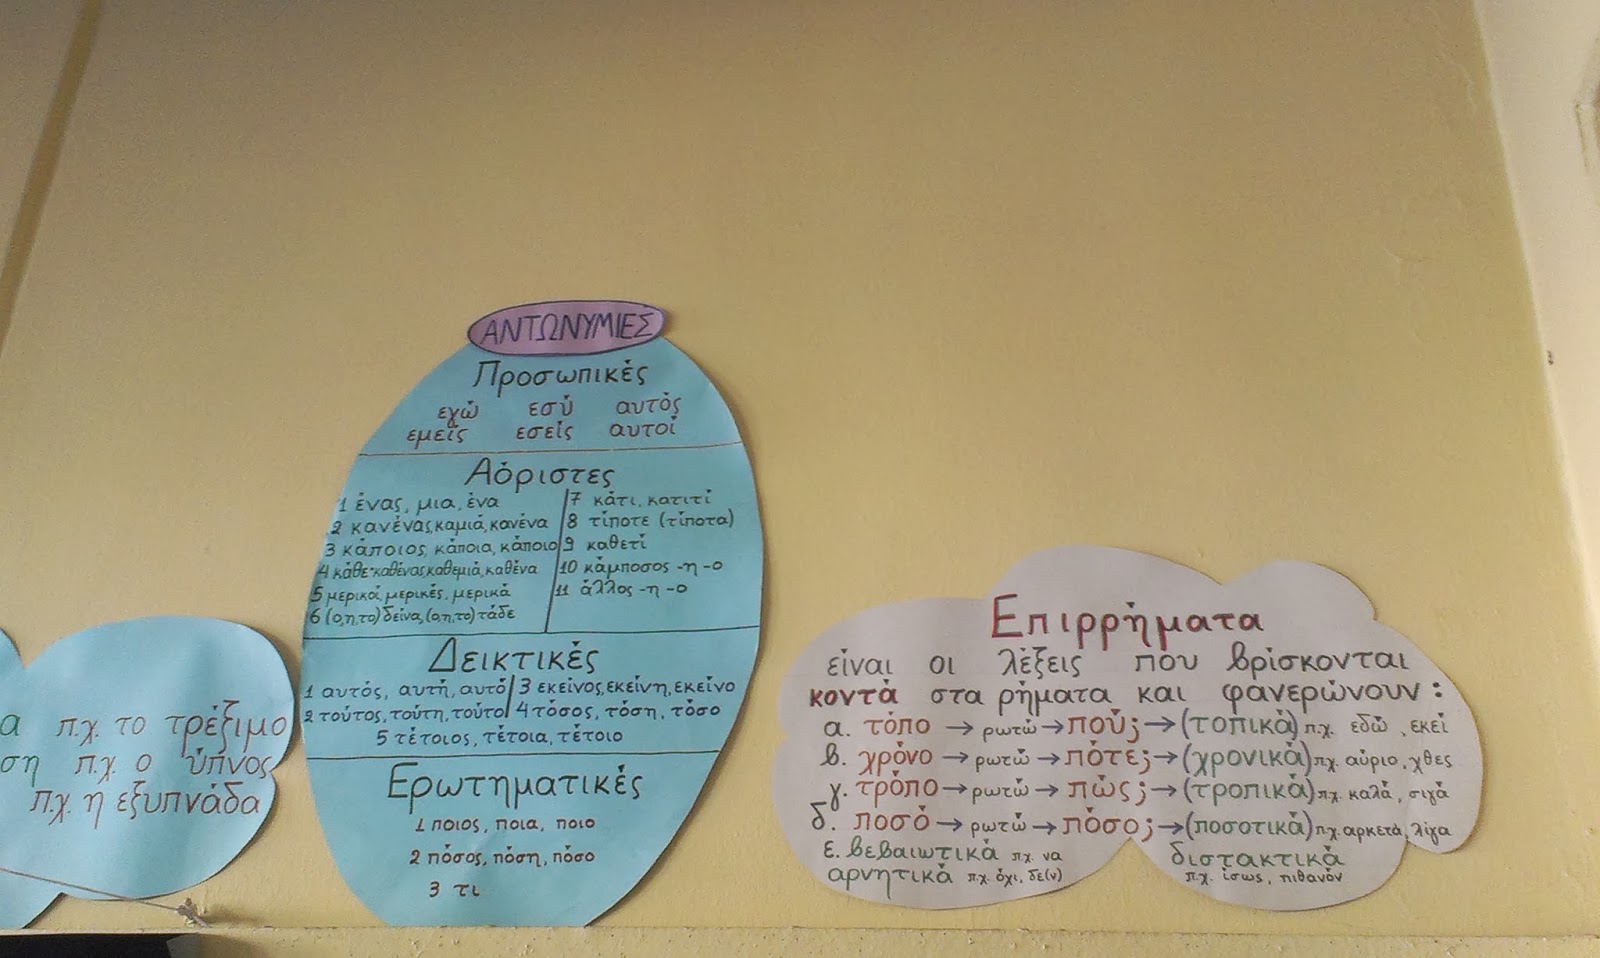 α π.χ. το τρέξιμο
ση π.χ. ο ύπνος
π.χ. η εξυπνάδα
ΑΝΤΩΝΥΜΙΕΣ
Προσωπικές
εγώ εσύ αυτός
εμείς εσείς αυτοί
Αόριστες
1 ένας, μια, ένα
2 κανένας, καμιά, κανένα
3 κάποιος, κάποια, κάποιο
4 κάθε-καθένας, καθεμιά, καθένα
5 μερικοί, μερικές, μερικά
6 (ο,η,το) δείνα, (ο,η,το) τάδε
7 κάτι, κατιτί
8 τίποτε (τίποτα)
9 καθετί
10 κάμποσος -η -ο
11 άλλος -η -ο
Δεικτικές
1 αυτός, αυτή, αυτό
2 τούτος, τούτη, τούτο
3 εκείνος, εκείνη, εκείνο
4 τόσος, τόση, τόσο
5 τέτοιος, τέτοια, τέτοιο
Ερωτηματικές
1 ποιος, ποια, ποιο
2 πόσος, πόση, πόσο
3 τι
Επιρρήματα
είναι οι λέξεις που βρίσκονται
κοντά στα ρήματα και φανερώνουν:
α. τόπο → ρωτώ → πού; → (τοπικά) π.χ. εδώ, εκεί
β. χρόνο → ρωτώ → πότε; → (χρονικά) π.χ. αύριο, χθες
γ. τρόπο → ρωτώ → πώς; → (τροπικά) π.χ. καλά, σιγά
δ. ποσό → ρωτώ → πόσο; → (ποσοτικά) π.χ. αρκετά, λίγα
ε. βεβαιωτικά π.χ. να
αρνητικά π.χ. όχι, δε(ν)
διστακτικά
π.χ. ίσως, πιθανόν